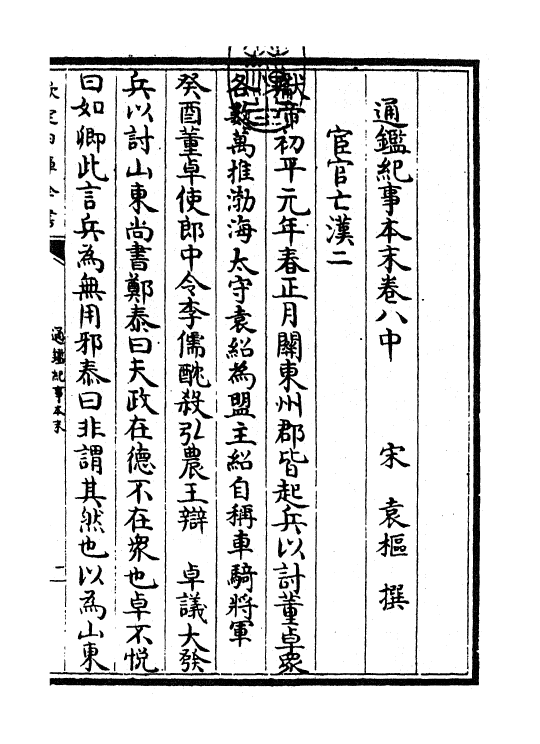 通鑑紀事本末卷八中
宋 袁樞 撰
宦官亡漢二
獻帝初平元年春正月關東州郡皆起兵以討董卓衆
各數萬推渤海太守袁紹為盟主紹自稱車騎將軍
癸酉董卓使郎中令李儒酖殺弘農王辯 卓議大發
兵以討山東尚書鄭泰曰夫政在德不在衆也卓不悦
曰如卿此言兵為無用邪泰曰非謂其然也以為山東
通鑑紀事本末